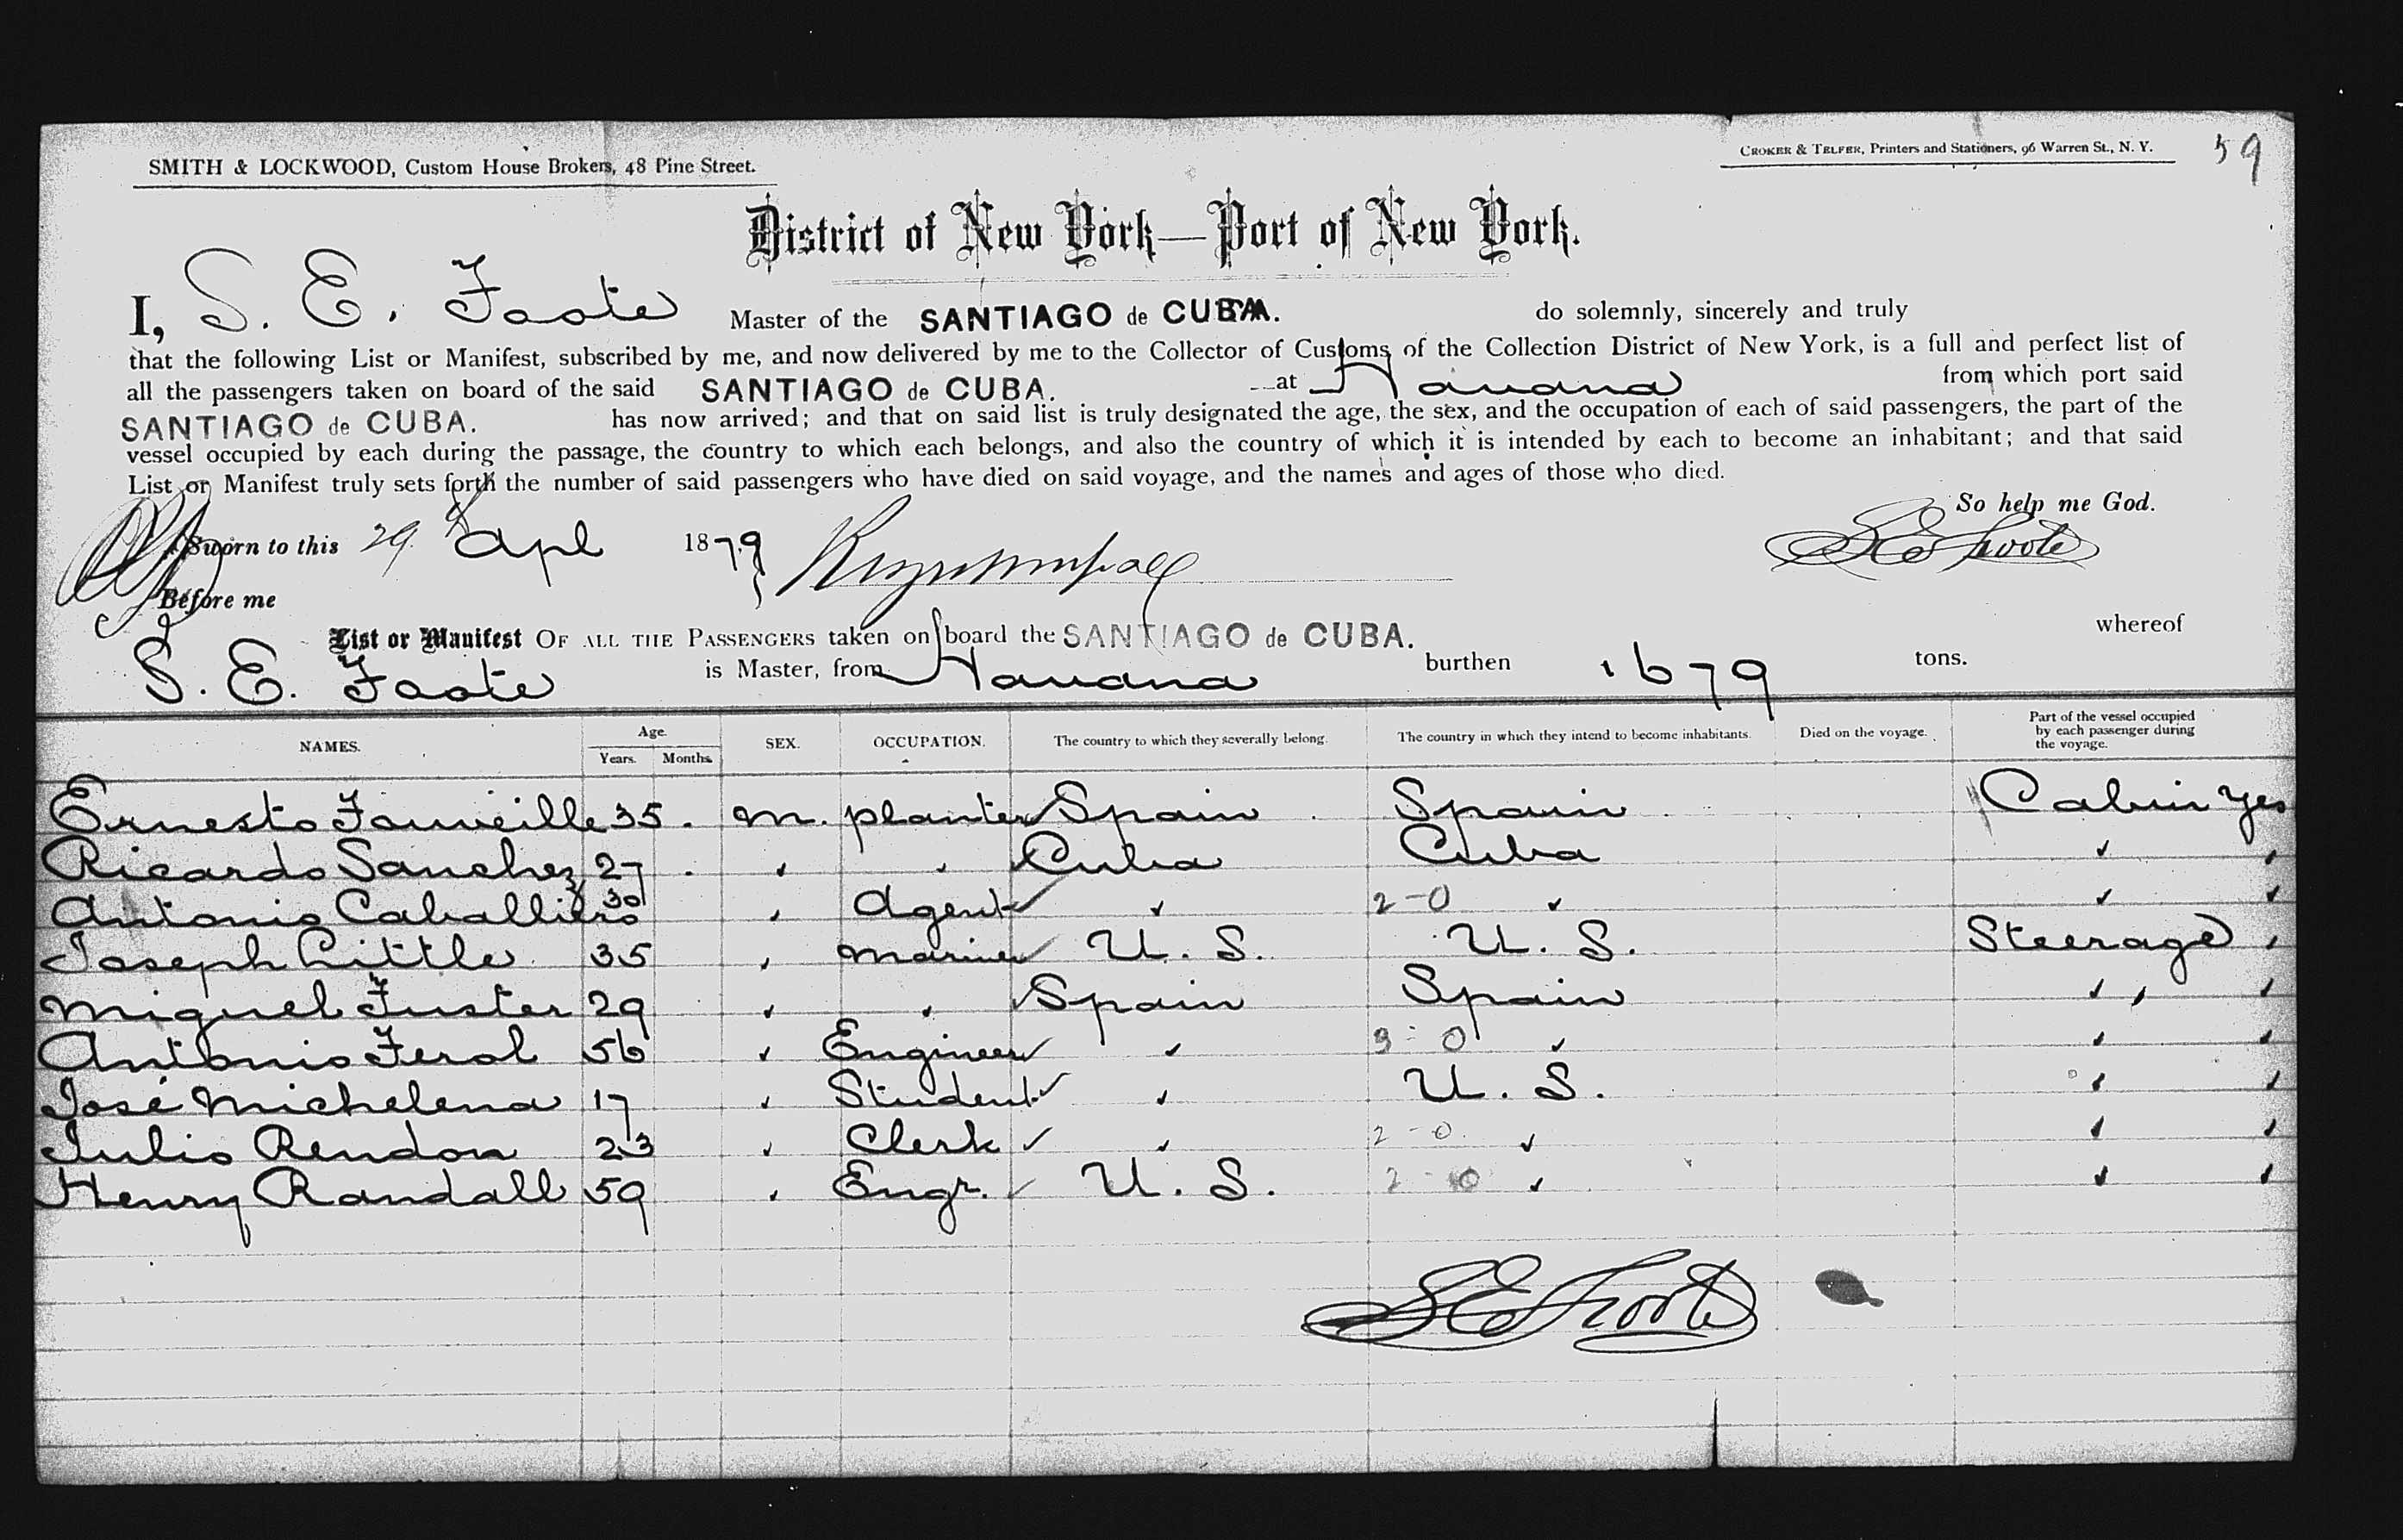 SMITH & LOCKWOOD, Custom House Brokers, 48 Pine Street.
CROKER & TELFER, Printers and Stationers, 96 Warren St., N. Y.
59
District of New York—Port of New York.
I, S. E. Foote Master of the SANTIAGO de CUBA. do solemnly, sincerely and truly
that the following List or Manifest, subscribed by me, and now delivered by me to the Collector of Customs of the Collection District of New York, is a full and perfect list of
all the passengers taken on board of the said SANTIAGO de CUBA. at Havana from which port said
SANTIAGO de CUBA. has now arrived; and that on said list is truly designated the age, the sex, and the occupation of each of said passengers, the part of the
vessel occupied by each during the passage, the country to which each belongs, and also the country of which it is intended by each to become an inhabitant; and that said
List or Manifest truly sets forth the number of said passengers who have died on said voyage, and the names and ages of those who died.
So help me God.
Sworn to this 29 Apl 1879
S E Foote
Before me
List or Manifest OF ALL THE PASSENGERS taken on board the SANTIAGO de CUBA. whereof
S. E. Foote is Master, from Havana burthen 1679 tons.
NAMES. Age. Years. Months. SEX. OCCUPATION. The country to which they severally belong. The country in which they intend to become inhabitants. Died on the voyage. Part of the vessel occupied by each passenger during the voyage.
Ernesto 35 . m. planter Spain Spain Cabin Yes
Ricardo Sanchez 27 . Cuba Cuba
Antonio Caballiero 30 Agent 2-0
Joseph Little 35 Mariner U. S. U. S. Steerage
Miguel Fuster 29 Spain Spain
Antonio Ferol 56 Engineer 3-0
José Michelena 17 Student U. S.
Julio Rendon 23 Clerk 2-0
Henry Randall 59 Engr. U. S. 2-0
S E Foote